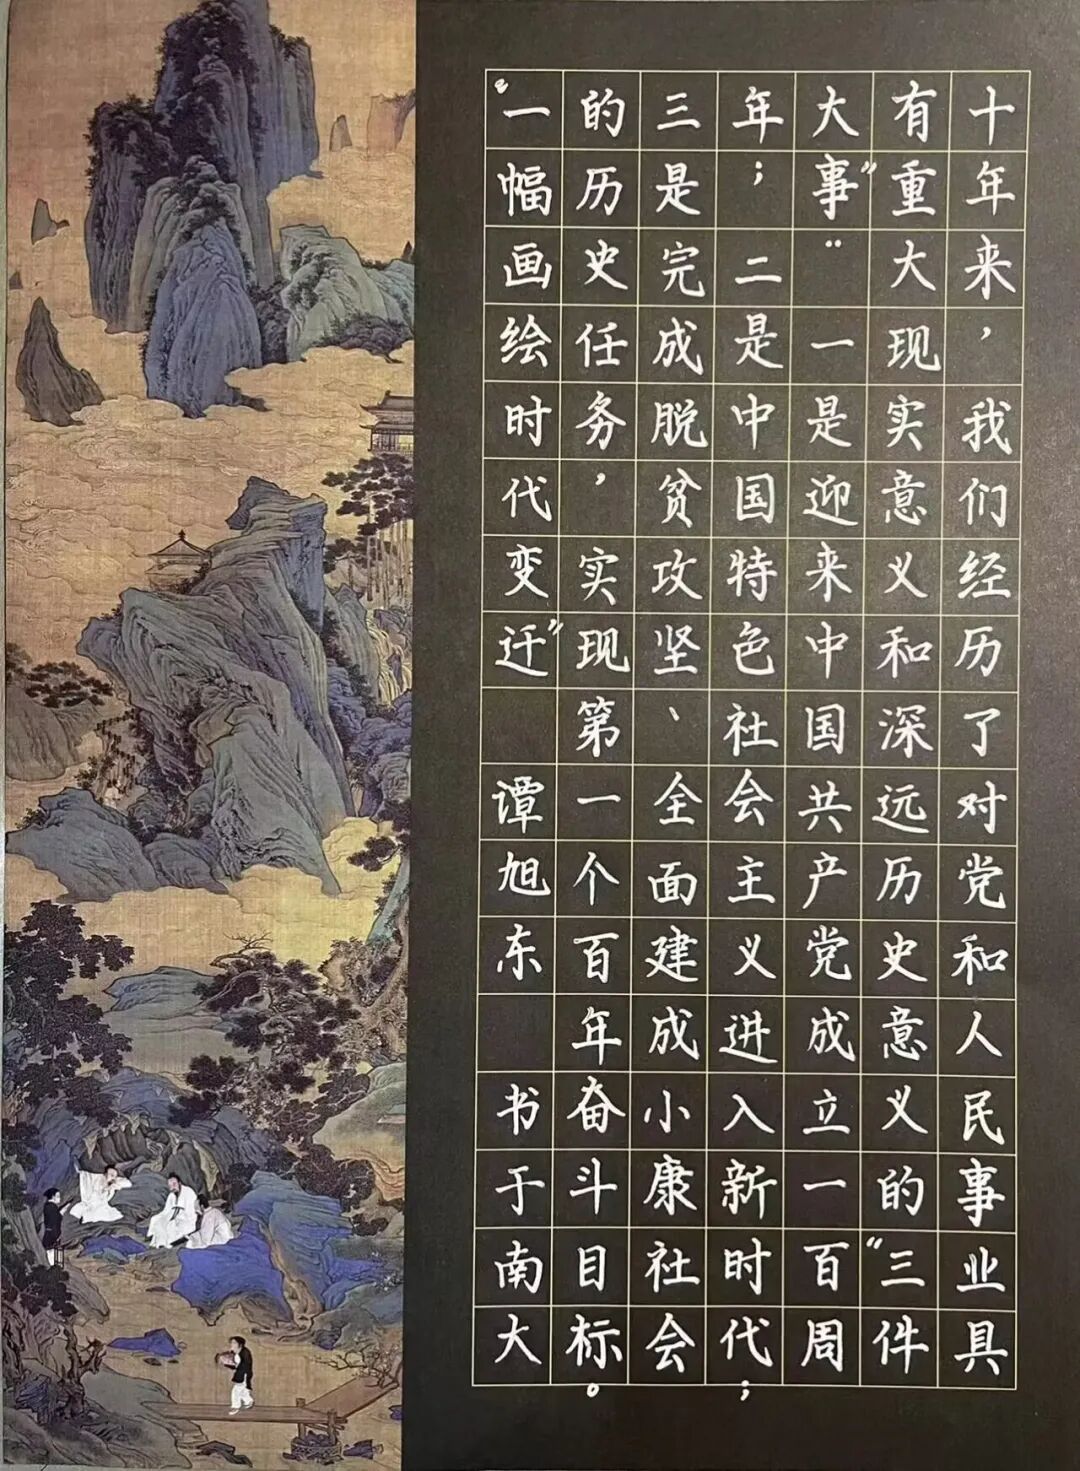 十年来，我们经历了对党和人民事业具
有重大现实意义和深远历史意义的“三件
大事”：一是迎来中国共产党成立一百周
年；二是中国特色社会主义进入新时代；
三是完成脱贫攻坚、全面建成小康社会
的历史任务，实现第一个百年奋斗目标。
“一幅画绘时代变迁” 谭旭东 书于南大